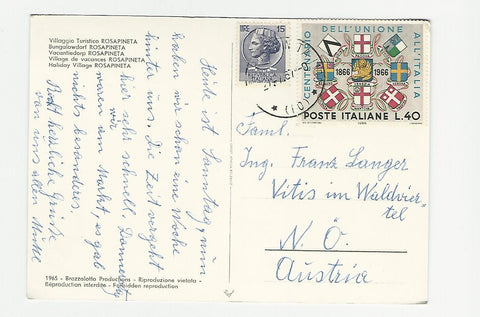 Villaggio Turistico ROSAPINETA
Bungalowdorf ROSAPINETA
Vacantiedorp ROSAPINETA
Village de vacances ROSAPINETA
Holiday Village ROSAPINETA
Heute ist Sonntag, nun
haben wir schon eine Woche
hinter uns. Die Zeit vergeht
hier sehr schnell. Donnerstag
wir
waren am Markt, es gab
nichts besonderes.
Recht herzliche Grüße
von uns allen
1965 - Brazzolotto Productions - Riproduzione vietata -
Reproduction interdite - Forbidden reproduction
15
CENTENARIO DELL'UNIONE ALL'ITALIA
1866 1966
POSTE ITALIANE L.40
Faml.
Ing. Franz Langer
Vitis im Waldvier-
tel
N. Ö.
Austria